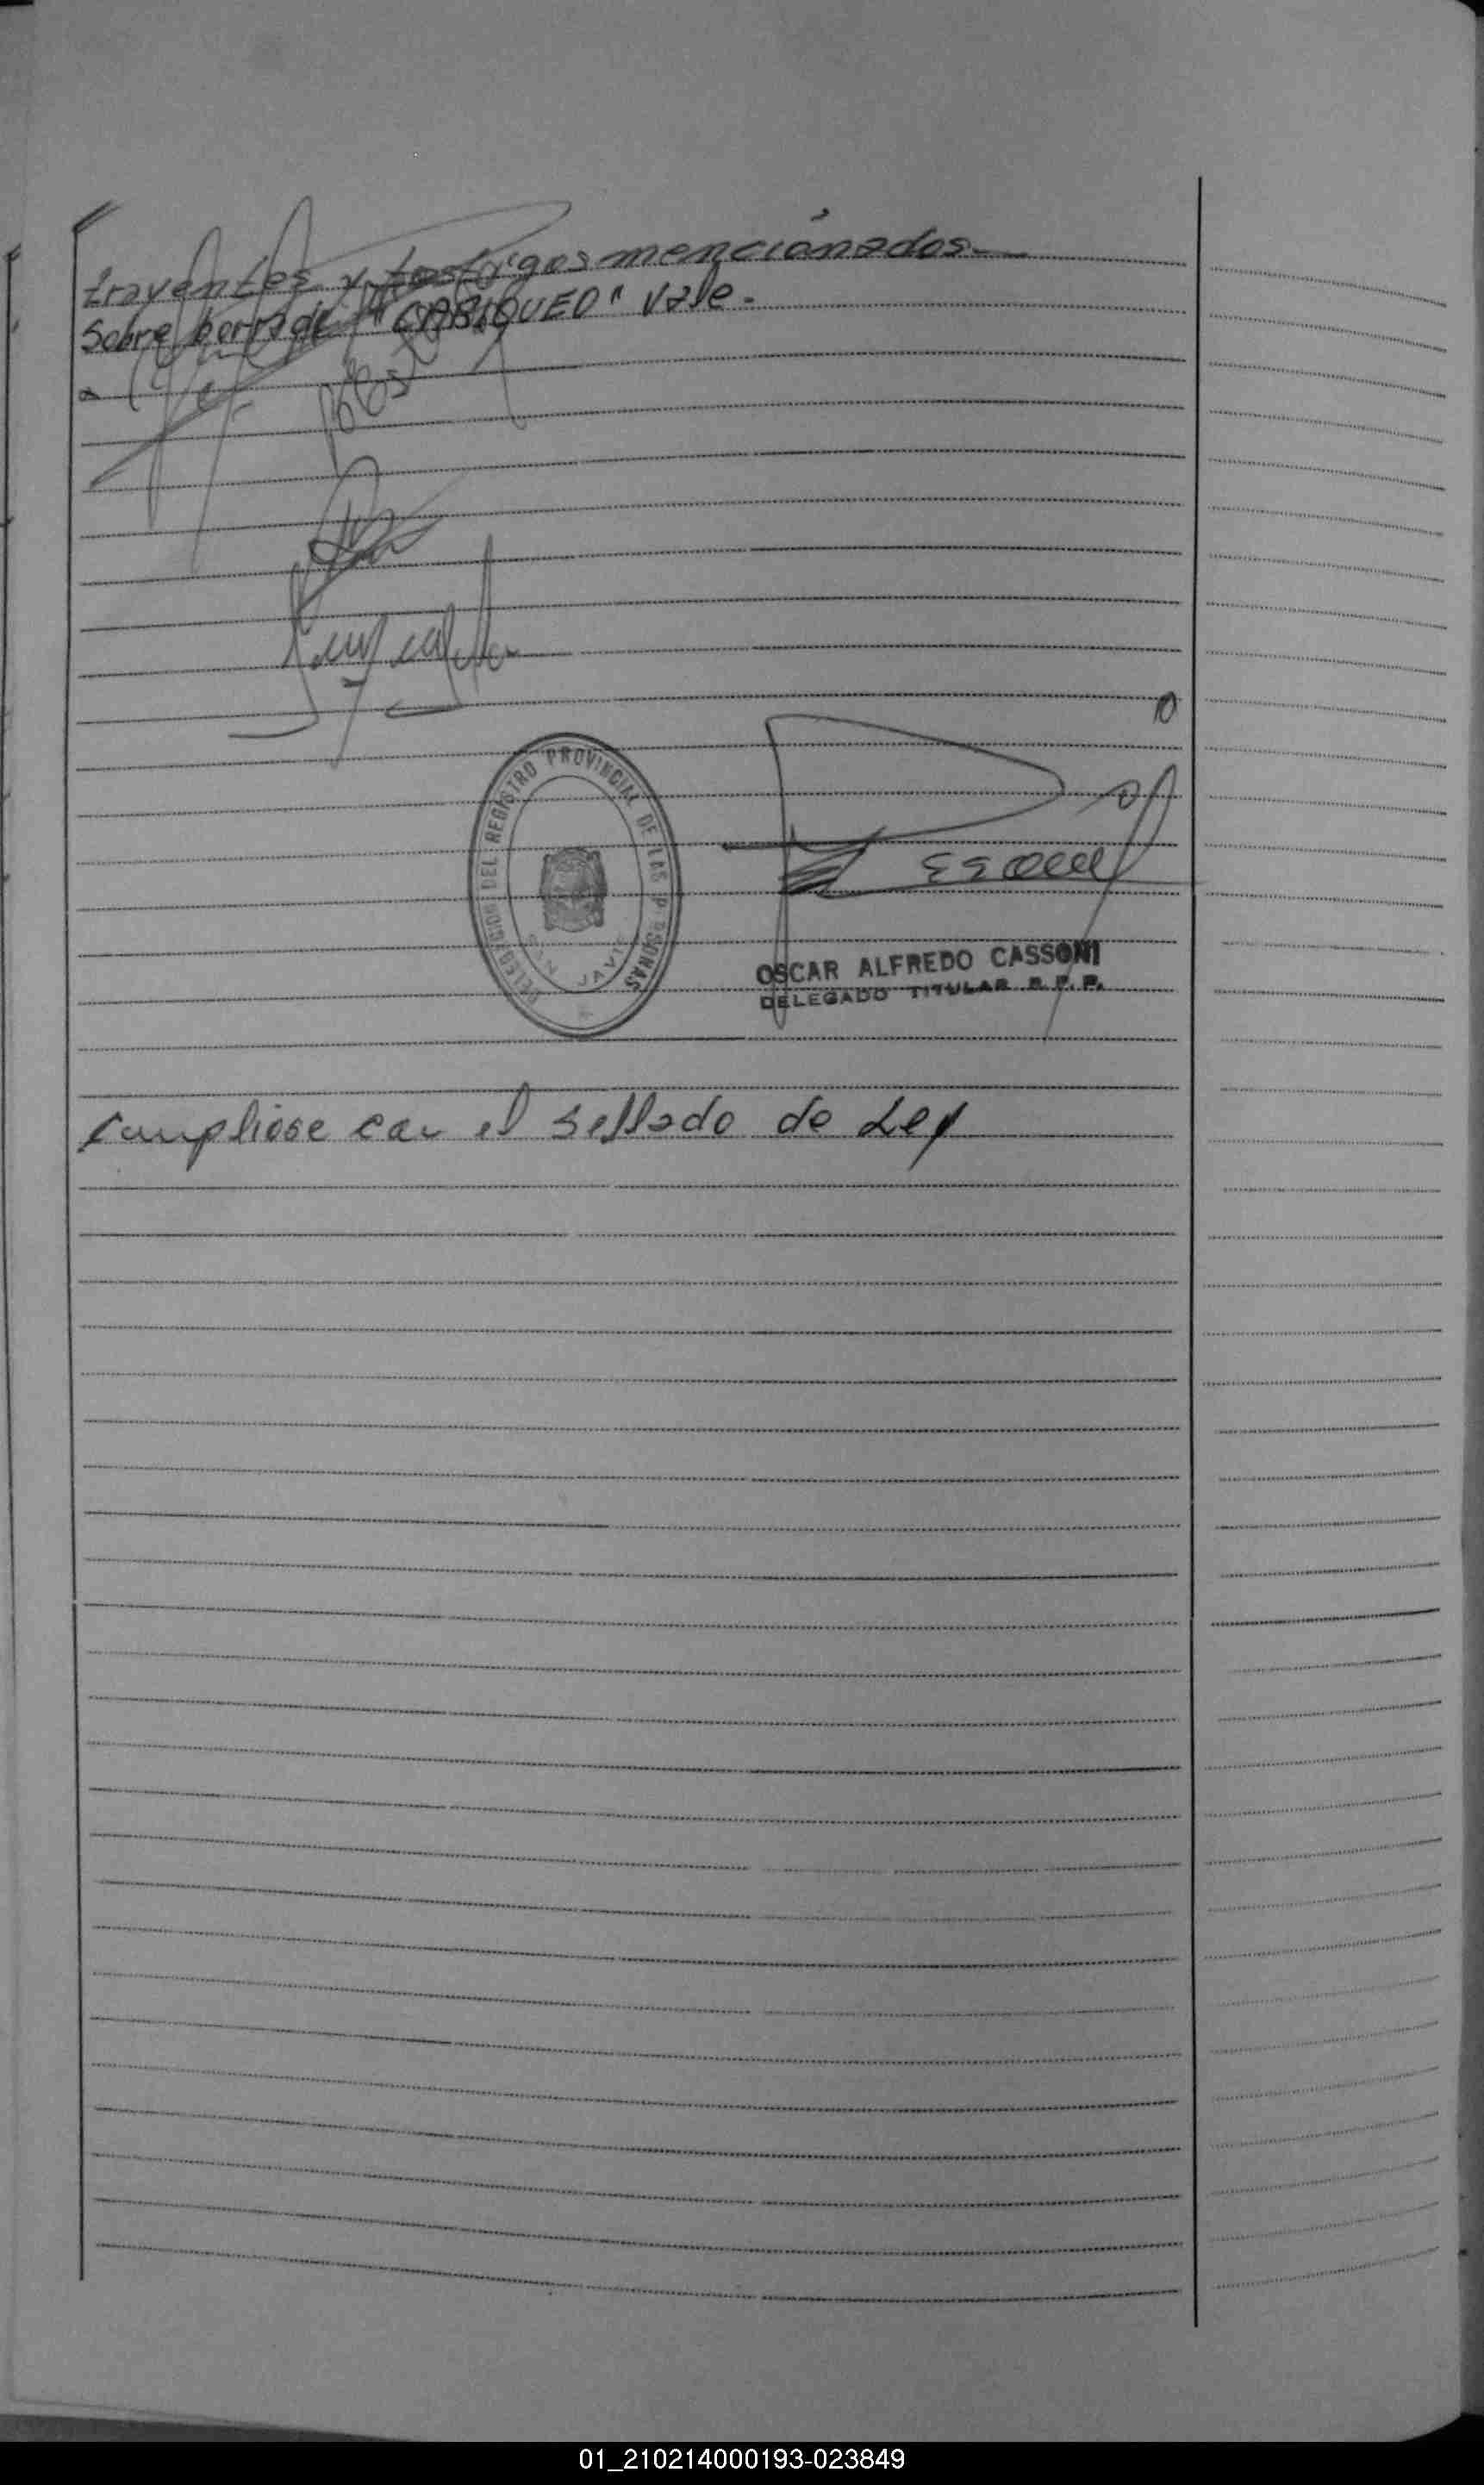 trayentes y testigos mencionados.—
Sobre borrado "CARIQUEO" Vale.-
DELEGACION DEL REGISTRO PROVINCIAL DE LAS PERSONAS
SAN JAVIER
OSCAR ALFREDO CASSONI
DELEGADO TITULAR R. P. P.
Cumpliose con el sellado de Ley
01_210214000193-023849